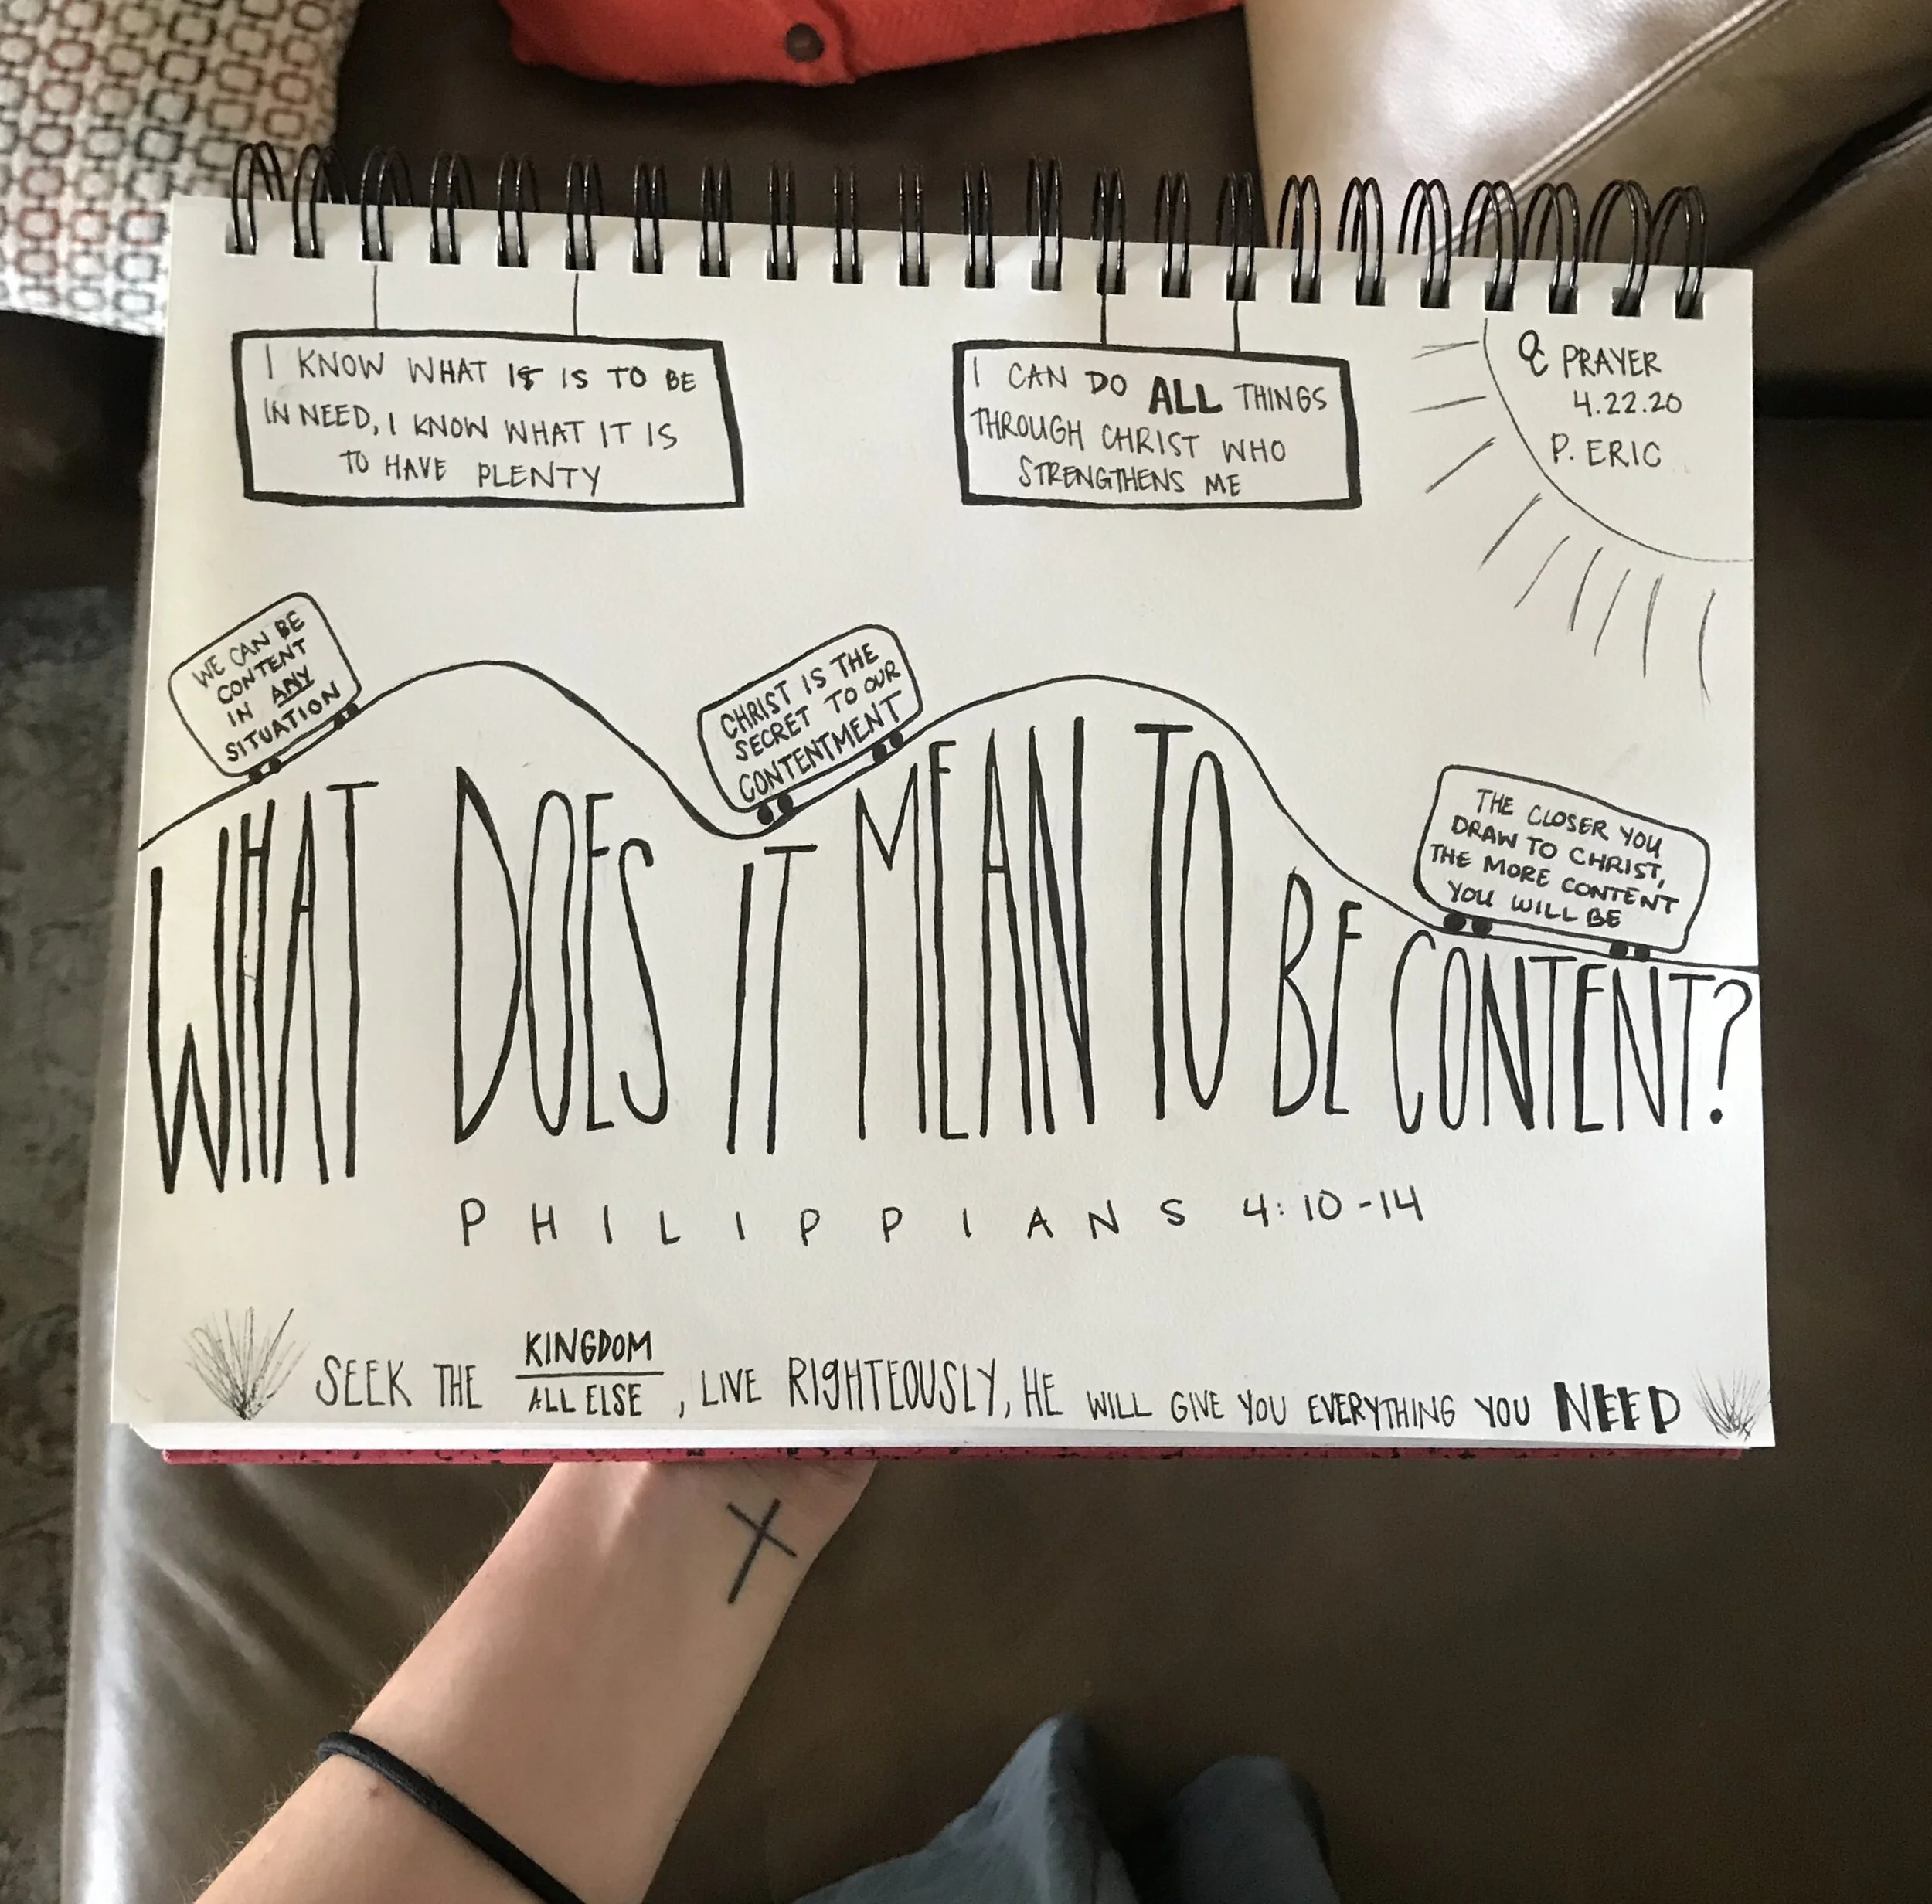 I KNOW WHAT IT IS TO BE
IN NEED, I KNOW WHAT IT IS
TO HAVE PLENTY
I CAN DO ALL THINGS
THROUGH CHRIST WHO
STRENGTHENS ME
PRAYER
4.22.20
P. ERIC
WE CAN BE
CONTENT
IN ANY
SITUATION
CHRIST IS THE
SECRET TO OUR
CONTENTMENT
THE CLOSER YOU
DRAW TO CHRIST,
THE MORE CONTENT
YOU WILL BE
WHAT DOES IT MEAN TO BE CONTENT?
PHILIPPIANS 4:10-14
SEEK THE KINGDOM
ALL ELSE, LIVE RIGHTEOUSLY, HE WILL GIVE YOU EVERYTHING YOU NEED